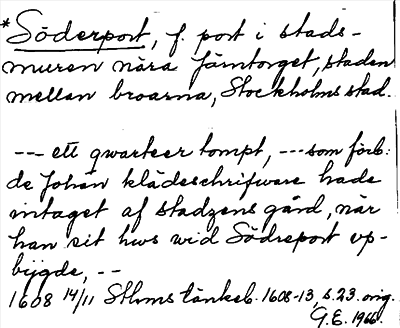 *Söderport, f. port i stads-
muren nära Järntorget, staden
mellan broarna, Stockholms stad.
--- ett qwarteer tompt, --- som förb:de
Johan klädeschrifware hade
intaget af stadzens gård, när
han sit hws wid Södreport up-
bijgde, --
1608 14/11 Sthms tänkeb. 1608-13, s. 23. orig.
G.E. 1966.